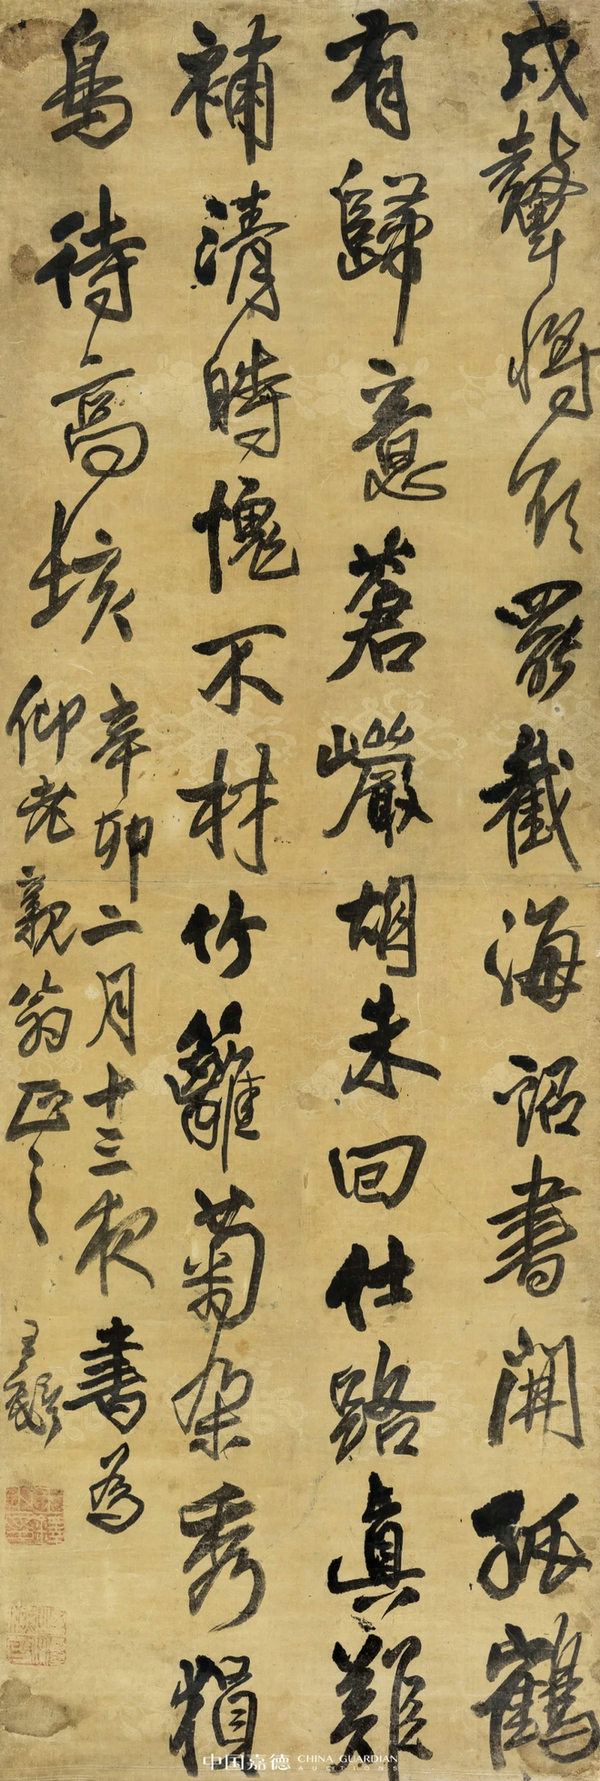 戍鼙將欲罷截海詔書開孤鶴
有歸意蒼巖胡未回仕路真難
補清時愧不材竹籬菊朵秀猿
鳥待高垓
辛卯二月十三夜書為
仰老親翁正之
王鐸
中国嘉德 CHINA GUARDIAN AUCTIONS